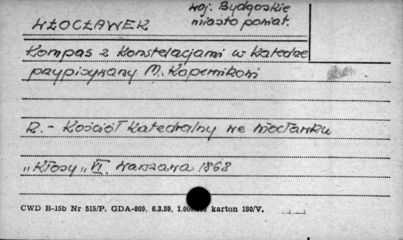 woj. Bydgoskie
WŁOCŁAWEK miasto powiat.
Kompas z konstelacjami w Katedrze
przypisywany M. Kopernikowi
R. - Kościół Katedralny we Włocławku
"Kłosy" VI. Warszawa 1868
CWD B-15b Nr 515/P. GDA-809. 6.3.59. karton 180/V.